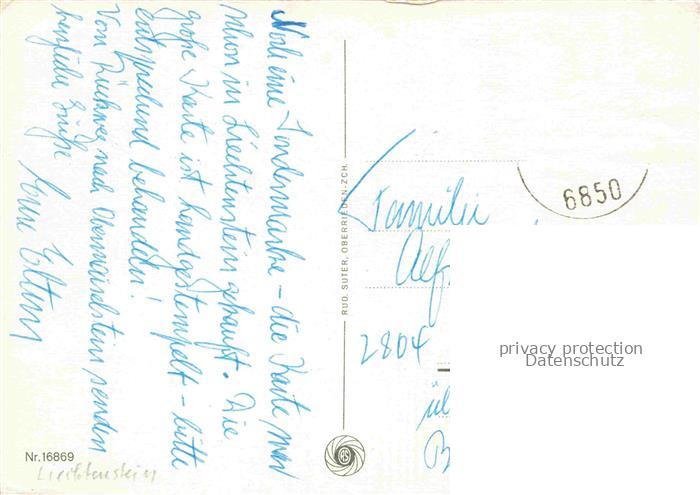 Noch eine Sondermarke – die Karte war
schon in Liechtenstein gekauft. Die
große Karte ist handgestempelt – bitte
entsprechend behandeln!
Vom Rückweg nach Obermaiselstein senden
herzliche Grüße
Eure Eltern
RUD. SUTER, OBERRIEDEN-ZCH.
Familie
Alf
2804
ül
B
6850
privacy protection
Datenschutz
RS
Nr.16869
Liechtenstein